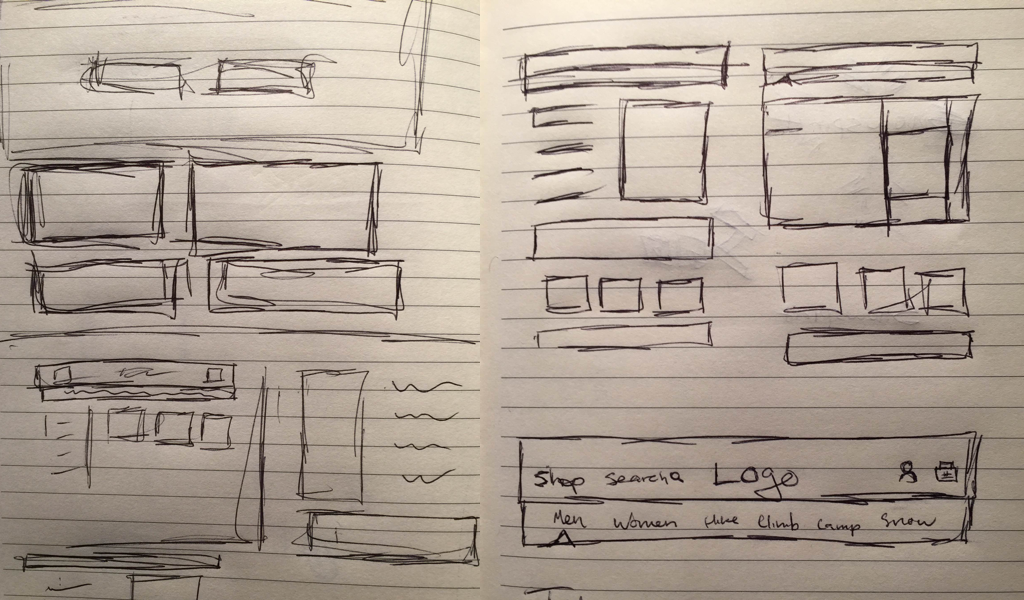 Shop search Logo
Men Women Hike Climb Camp Snow